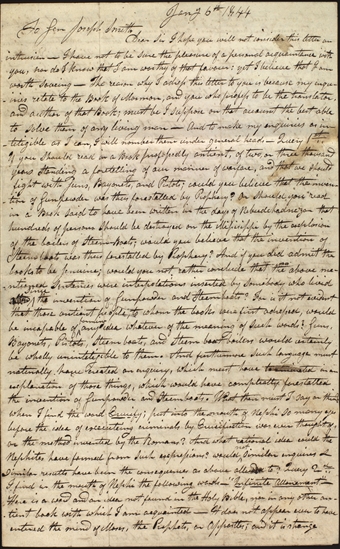 Jany 6th 1844
To Gen Joseph Smith
Dear Sir I hope you will not consider this letter an
intrusion — I have not to be sure the pleasure of a personal acquaintance with
you; nor do I know that I am worthy of that favour: yet I believe that I am
worth saving — The reason why I adop this letter to you is because my inqui-
ries relate to the Book of Mormon, and you who profess to be the translator
and author of that Book; must be I suppose on that account the best able
to solve them of any living man — And to make my inquiries as in-
telegible as I can, I will number them under general heads — Query 1st
If you should read in a Book professedly antient, of two, or three thousand
years standing a foretelling of our manner of warfare, and that we should
fight with Guns, Bayonets, and Pistols; could you believe that the inven-
tion of Gunpowder was thus forestalled by Prophecy? Or should you read
in a Book said to have been written in the day of Nebuchadnezzar that
hundreds of persons should be destroyed on the Missisippi by the explosion
of the boilers of Steem-Boats; would you believe that the invention of
Steemboats was thus forestalled by Prophecy? And if you did admit the
books to be genuine, would you not rather conclude that the above men-
tioned Sentences were interpolations inserted by somebody who lived
after the invention of Gunpowder and Steemboats? For is it not evident
that those antient people, to whom the books were first adressed, would
be incapable of any idea whatever of the meaning of such words? Guns,
Bayonets, Pistols, Steemboats, and Steem boat boilers would certainly
be wholly unintelegible to them. And furthermore such language must
naturally have created an inquiry, which must have to an
explanation of those things, which would have completely forestalled
the invention of Gunpowder and Steemboats. What then must I say or think
when I find the word Crucify; put into the mouth of Nephi so many ages
before the idea of executeing criminals by Crucifixtion was ever thought of
or the method invented by the Romans? And what rational idea could the
Nephites have formed from such expressions? would similar inquiries &
similar results have been the consequence as above alluded to? Query 2nd
I find in the mouth of Nephi the following words "Infinite Attonement"
Here is a word and an idea not found in the Holy Bible, nor in any other an-
tient book with which I am acquainted — It does not appear ever to have
entered the mind of Moses, the Prophets, or Appostles; and it is strange